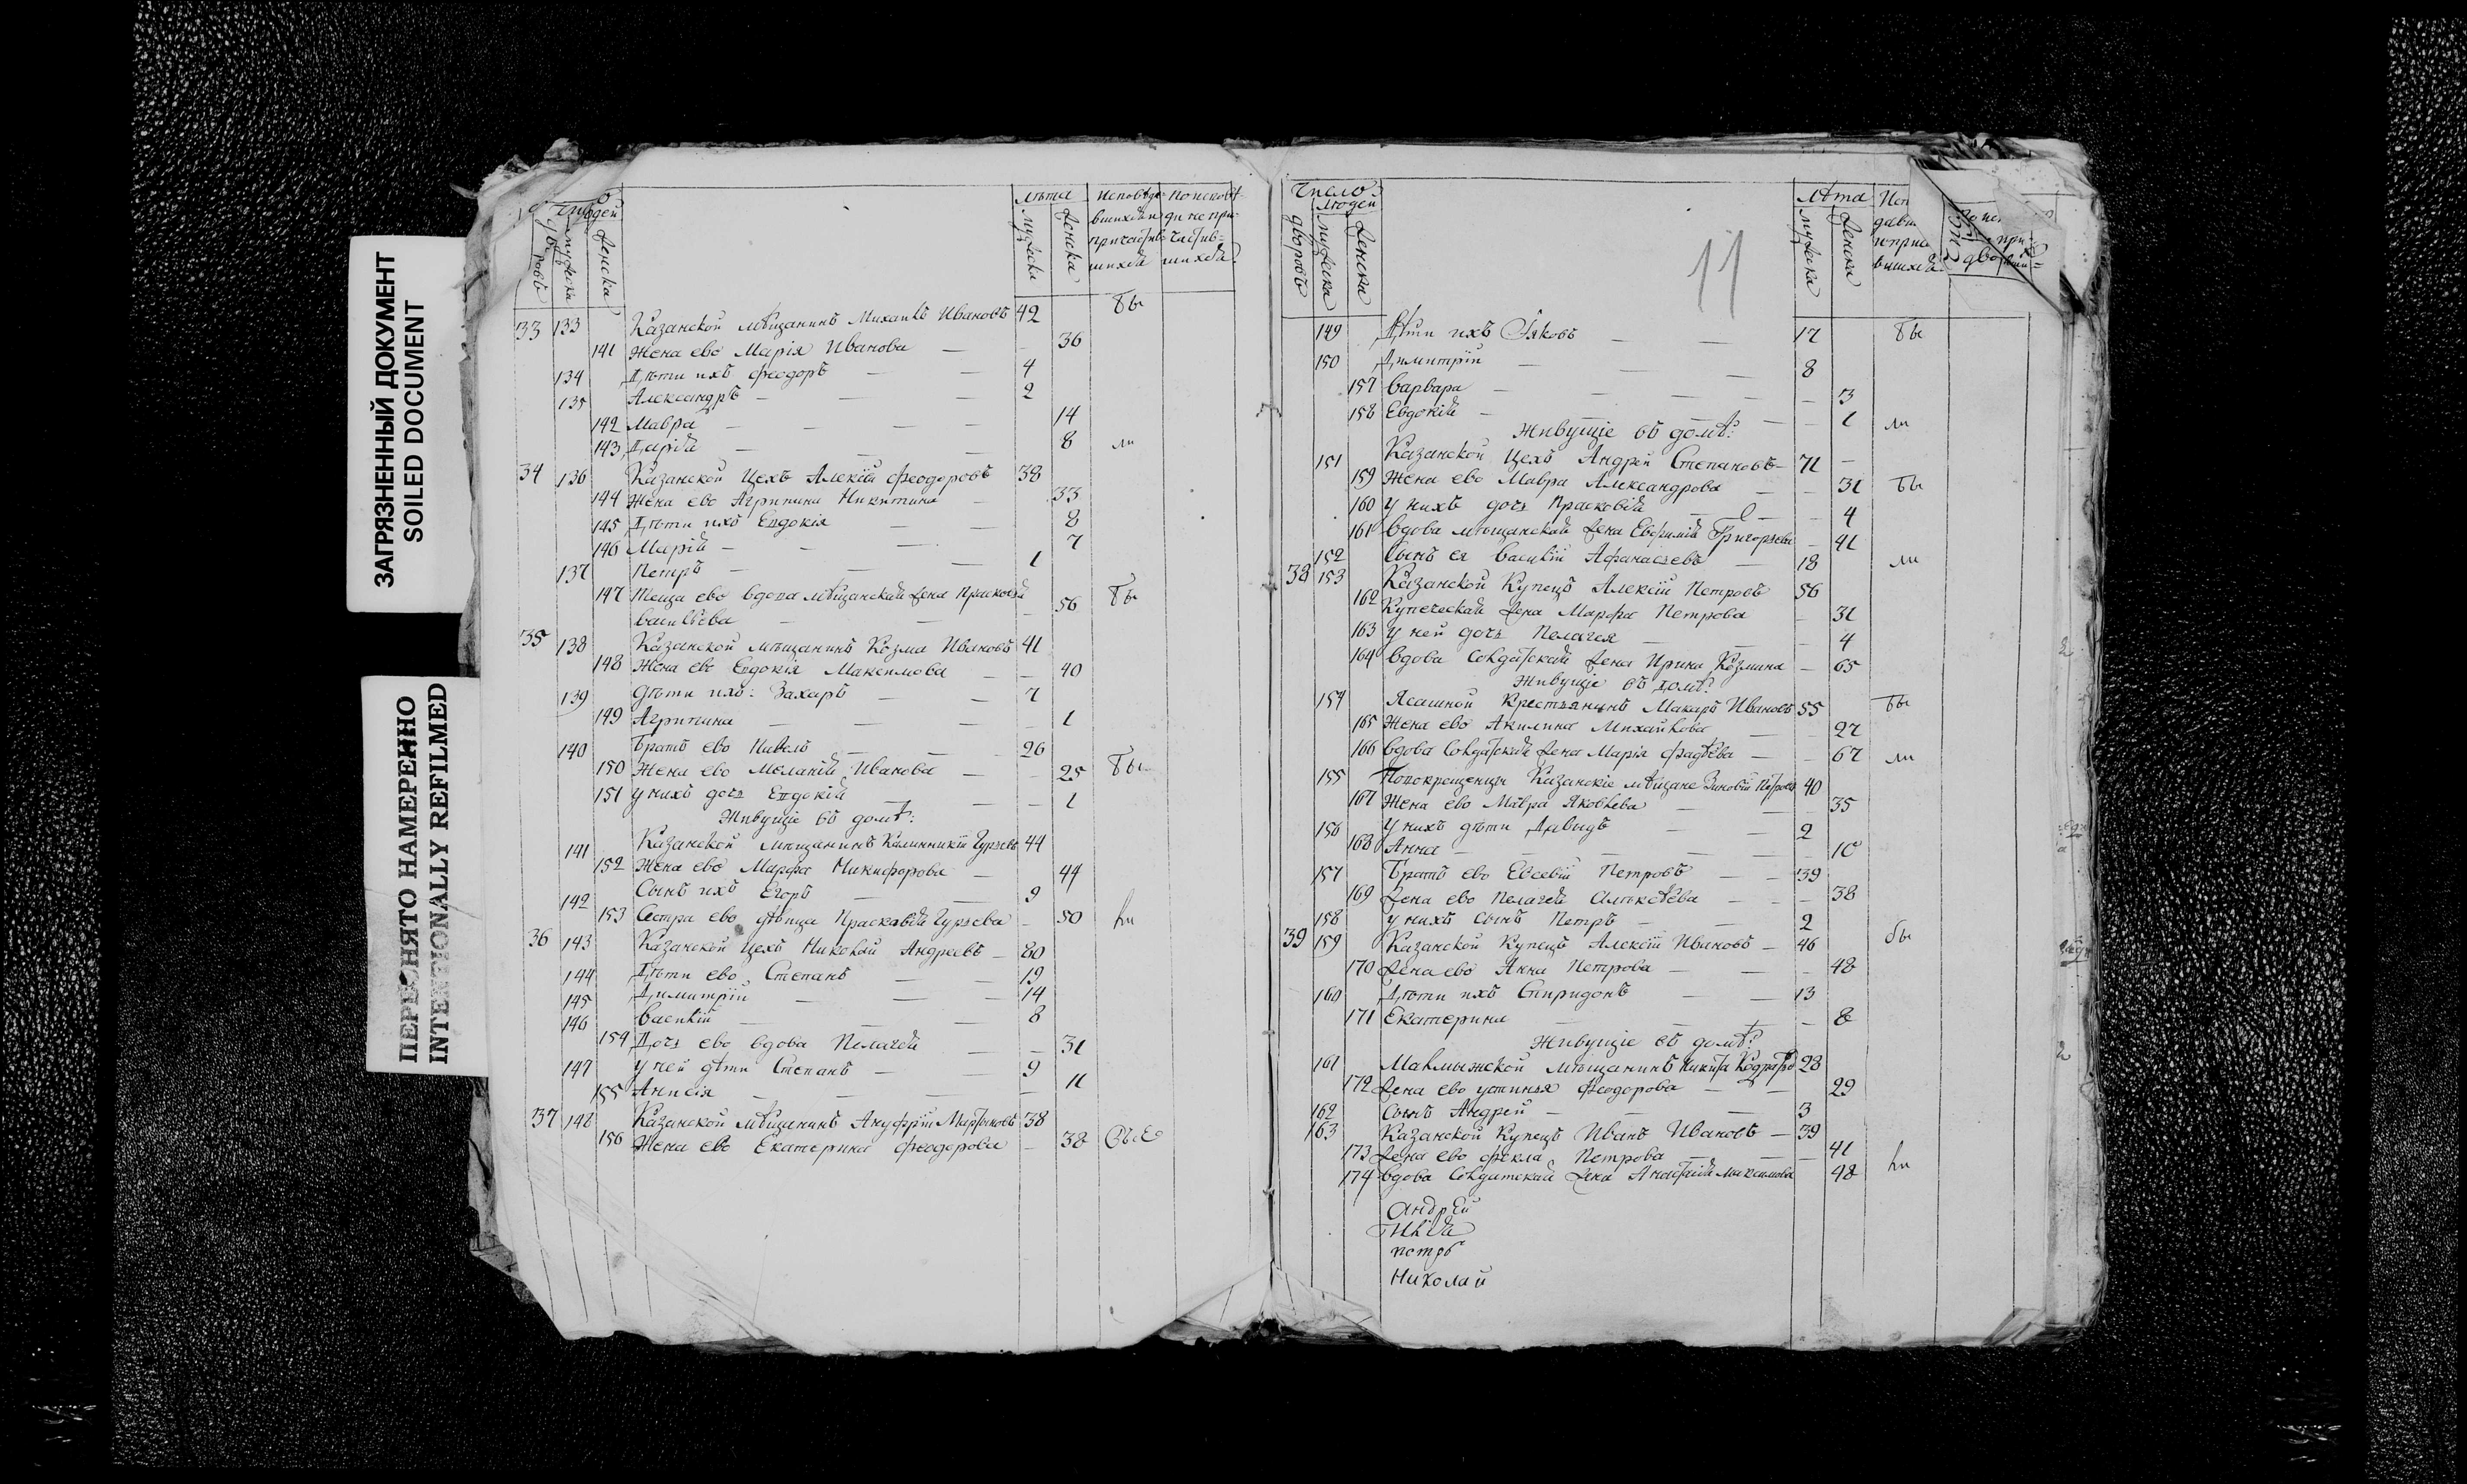 ЗАГРЯЗНЕННЫЙ ДОКУМЕНТ
SOILED DOCUMENT
ПЕРЕСНЯТО НАМЕРЕННО
INTENTIONALLY REFILMED
людей
мужеска
женска
лѣта
мужеска
женска
Исповѣда=
вшихся и
причастив=
шихся
по испове=
ди не при=
частив=
шихся
33 133 Казанской мѣщанинъ Михаилъ Ивановъ 42 бы
141 Жена ево Марія Иванова — 36
134 Дѣти ихъ Феодоръ — — 4
135 Александръ — — — 2
142 Мавра — — — — 14
143 Дарія — — — 8 ли
34 136 Казанской Цехъ Алексій Феодоровъ 38
144 Жена ево Агрипина Никитина — 33
145 Дѣти ихъ Евдокія — — 8
146 Марія — — — 7
137 Петръ — — — 1
147 Теща ево вдова мѣщанская жена Прасковья
Васильева — — — 56 бы
35 138 Казанской мѣщанинъ Козма Ивановъ 41
148 Жена ево Евдокія Максимова — — 40
139 дѣти ихъ: Захаръ — — 7
149 Агрипина — — — — 1
140 Братъ ево Павелъ — — 26
150 Жена ево Меланія Иванова — — 25 бы
151 у нихъ дочь Евдокія — — — 1
Живущіе въ домѣ:
141 Казанской мѣщанинъ Калинникій Гурьевъ 44
152 Жена ево Марфа Никифорова — 44
142 Сынъ ихъ Егоръ — — 9
153 Сестра ево дѣвица Праскавія Гурьева — 50 ли
36 143 Казанской Цехъ Николай Андреевъ — 80
144 Дѣти ево Степанъ — — 19
145 Димитрій — — — 14
146 Василій — — — 8
154 Дочь ево вдова Пелагея — — 31
147 у ней дѣти Степанъ — — 9
155 Анисія — — — — 11
37 148 Казанской мѣщанинъ Ануфрій Мартыновъ 38
156 Жена ево Екатерина Феодорова — 38
Число
людей
дворовъ
мужеска
женска
11
лѣта
мужеска
женска
149 Дѣти ихъ Іяковъ — — 17 бы
150 Димитрій — — — 8
157 Варвара — — — — — 3
158 Евдокія — — — 1 ли
Живущіе въ домѣ:
151 Казанской Цехъ Андрей Степановъ — 71 —
159 Жена ево Мавра Александрова — — 31 бы
160 у нихъ дочь Прасковія — — — 4
161 вдова мѣщанская жена Евфимія Григорьева — 41
152 Сынъ ея Василій Афанасьевъ — 18 ли
38 153 Казанской Купецъ Алексій Петровъ 56
162 Купеческая жена Марфа Петрова — 31
163 у ней дочь Пелагея — — — 4
164 вдова Солдатская жена Ирина Козмина — 65
Живущіе въ домѣ:
154 Ясашной Крестьянинъ Макаръ Ивановъ 55 бы
165 Жена ево Акилина Михайлова — — 27
166 вдова Солдатская жена Марія Фадѣева — — 67 ли
155 Новокрещенцы Казанскіе мѣщане Зиновій Петровъ 40
167 Жена ево Мавра Яковлева — — 35
156 у нихъ дѣти Давидъ — — 2
168 Анна — — — — — 10
157 Братъ ево Евсевій Петровъ — — 39
169 жена ево Пелагея Алексѣева — — — 38
158 у нихъ сынъ Петръ — — 2
39 159 Казанской Купецъ Алексій Ивановъ — 46 бы
170 жена ево Анна Петрова — — — 48
160 Дѣти ихъ Спиридонъ — — 13
171 Екатерина — — — — 8
Живущіе въ домѣ:
161 Малмыжской мѣщанинъ Никита 28
172 жена ево Устинья Феодорова — — — 29
162 Сынъ Андрей — — — 3
163 Казанской Купецъ Иванъ Ивановъ — 39
173 жена ево Фекла Петрова — — — 41
174 вдова Солдатская жена Анастасія Максимова 48 ли
Андрей
петръ
Николай